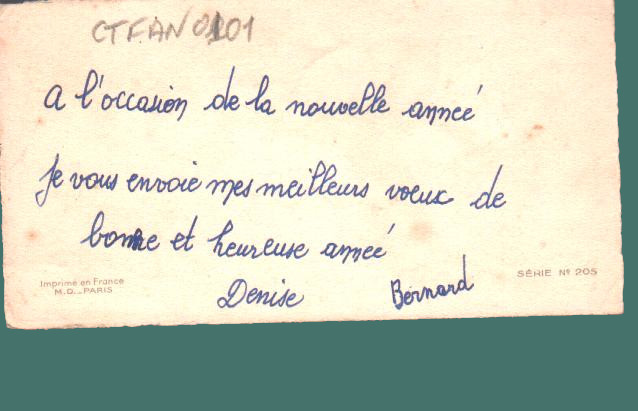 CTFAN0101
A l'occasion de la nouvelle année
Je vous envoie mes meilleurs voeux de
bonne et heureuse année
Imprimé en France
M.D._PARIS
SÉRIE Nº 205
Denise Bernard